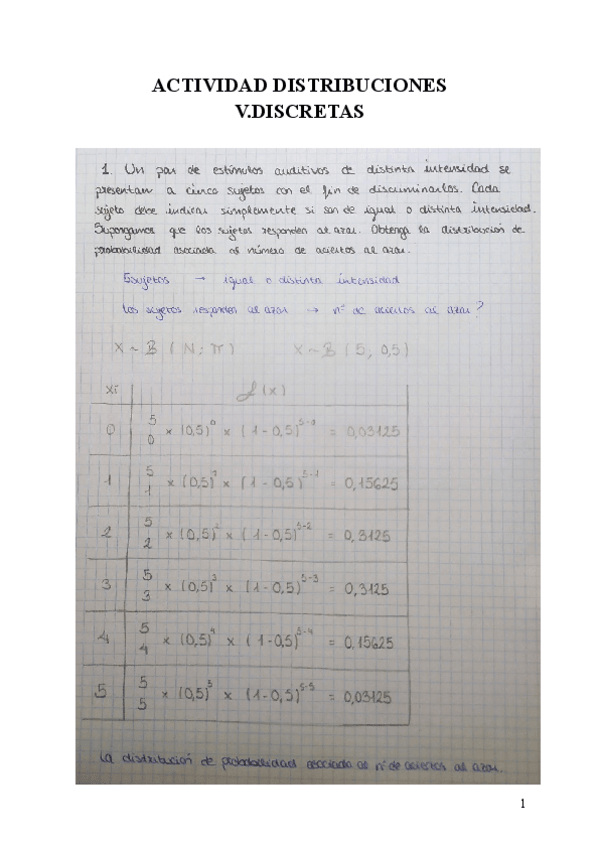 ACTIVIDAD DISTRIBUCIONES
V.DISCRETAS
1. Un par de estímulos auditivos de distinta intensidad se
presentan a cinco sujetos con el fin de discriminarlos. Cada
sujeto debe indicar simplemente si son de igual o distinta intensidad.
Supongamos que los sujetos responden al azar. Obtenga la distribución de
probabilidad asociada al número de aciertos al azar.
5 sujetos → igual o distinta intensidad
Los sujetos responden al azar → nº de aciertos al azar?
X ~ B ( N; π ) X ~ B ( 5, 0,5)
Xi f(x)
0 5 0 × (0,5)^0 × (1-0,5)^5-0 = 0,03125
1 5 1 × (0,5)^1 × (1-0,5)^5-1 = 0,15625
2 5 2 × (0,5)^2 × (1-0,5)^5-2 = 0,3125
3 5 3 × (0,5)^3 × (1-0,5)^5-3 = 0,3125
4 5 4 × (0,5)^4 × (1-0,5)^5-4 = 0,15625
5 5 5 × (0,5)^5 × (1-0,5)^5-5 = 0,03125
La distribución de probabilidad asociada al nº de aciertos al azar.
1